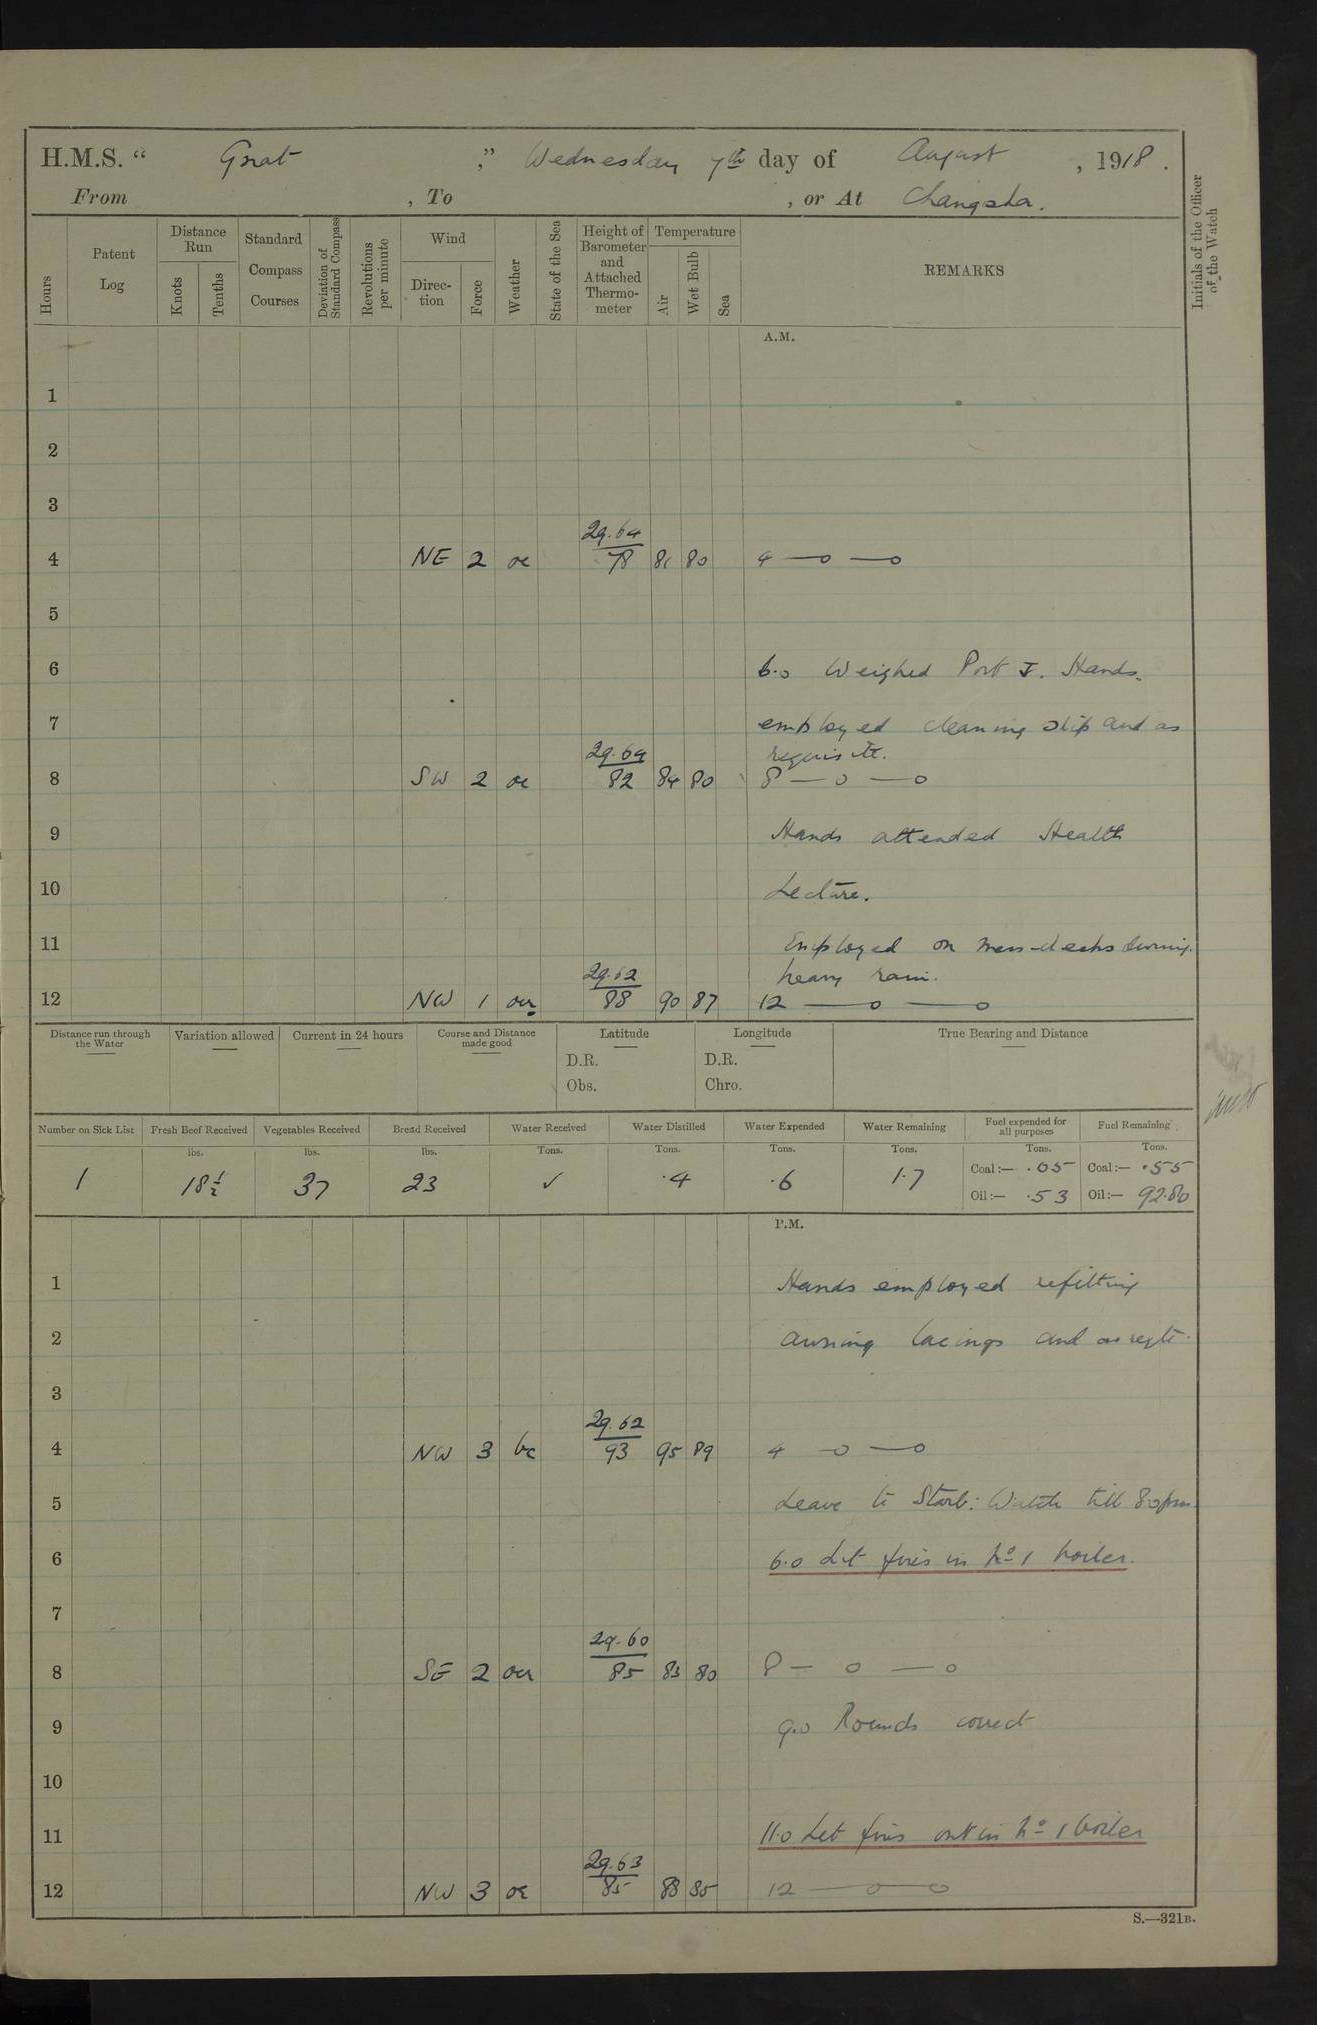 H.M.S. “ Gnat ,” Wednesday 7th day of August , 1918 .
From , To , or At Changsha.
Hours
Patent Log
Distance Run
Knots
Tenths
Standard Compass Courses
Deviation of Standard Compass
Revolutions per minute
Wind
Direction
Force
Weather
State of the Sea
Height of Barometer and Attached Thermometer
Temperature
Air
Wet Bulb
Sea
REMARKS
Initials of the Officer of the Watch
A.M.
1
2
3
29.64
4 NE 2 oc 78 81 80 4 —o —o
5
6 6.0 Weighed Port ⚓. Hands
7 employed cleaning ship and as
29.64 requisite.
8 SW 2 oc 82 84 80 8 — o —o
9 Hands attended Health
10 Lecture.
11 Employed on mess-decks during
29.62 heavy rain.
12 NW 1 ocr 88 90 87 12 —o —o
Distance run through the Water
Variation allowed
Current in 24 hours
Course and Distance made good
Latitude
D.R.
Obs.
Longitude
D.R.
Chro.
True Bearing and Distance
Number on Sick List
1
Fresh Beef Received
lbs.
18½
Vegetables Received
lbs.
37
Bread Received
lbs.
23
Water Received
Tons.
✓
Water Distilled
Tons.
.4
Water Expended
Tons.
.6
Water Remaining
Tons.
1.7
Fuel expended for all purposes
Tons.
Coal:— .05
Oil:— .53
Fuel Remaining
Tons.
Coal:— .55
Oil:— 92.80
P.M.
1 Hands employed refitting
2 awning lacings and as reqte.
3
29.62
4 NW 3 bc 93 95 89 4 —o —o
5 Leave to Starb: Watch till 8.0pm
6 6.0 Lit fires in No 1 boiler.
7
29.60
8 SE 2 ocr 85 83 80 8 — o —o
9 9.0 Rounds correct
10
11 11.0 Let fires out in No 1 boiler
29.63
12 NW 3 oc 85 88 85 12 —o —o
S.—321B.